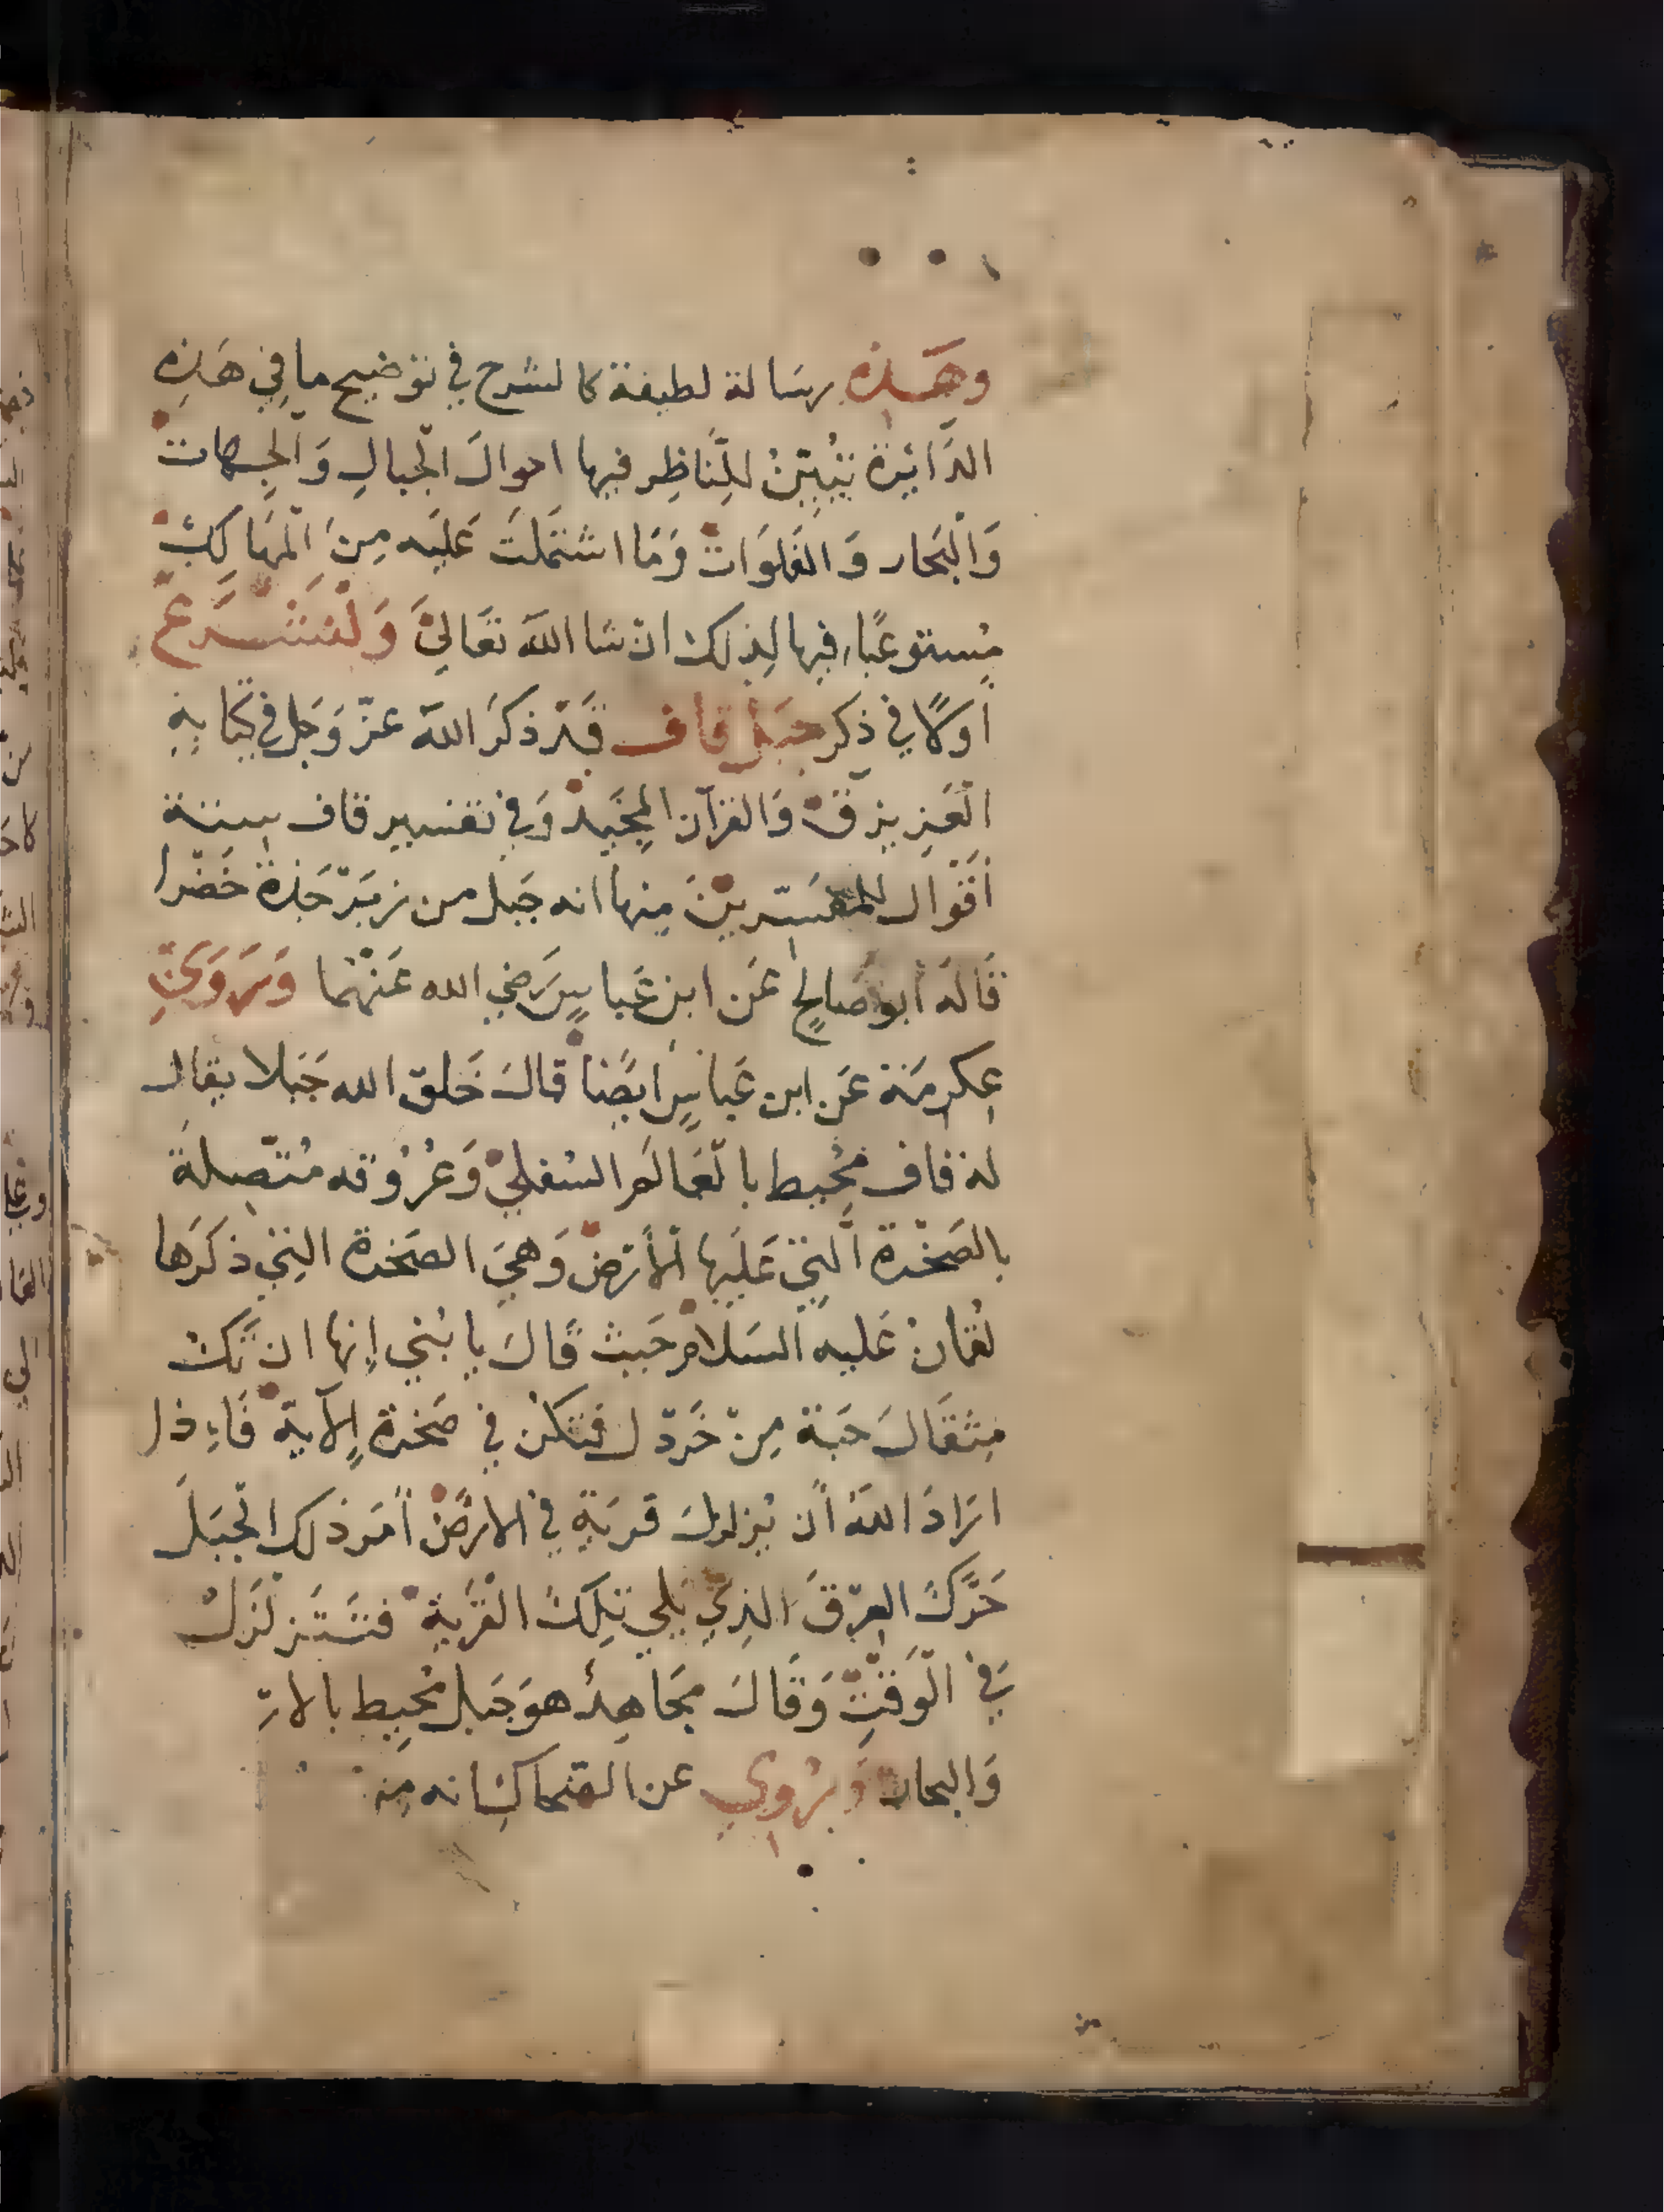 وهَذِهِ رسَالة لطيفة كالشرح في توضيح ما في هَذِهِ
الدَّائِرة تبُيِّنُ للِنَّاظِر فيها احوالَ الجبالِ وَالجِهات
وَالبَحار وَالفَلوَات وَمَا اشتَملَتْ عَليَه مِنَ المَهالكِ
مُستوعبًا فيها لِذلكَ ان شا اللَّه تعَالىَ وَلْنَشْرَعْ
أوَلاً في ذِكر جَبَل قاف قَدْ ذكَرَ اللَّه عَزّ وَجَل في كِتَابِهِ
الْعَزيز قْ وَالقرآن المَجِيد وَفي تفسير قاف ستة
أقْوال للمفسّرينَ مِنها انه جَبل من زبَرْجَدة خَضْرا
قَالهَ أبو صَالحٍ عَن ابن عَباسٍ رَضي الله عَنْهُمَا وَرَوَىَ
عِكرمَة عَن ابن عَباسٍ ايضًا قالَ خَلق الله جَبلا يقال
له قاف مُحيط بالعَالمَ السُفلي وَعُرُوقه مُتّصِلة
بالصَخْرة الَّتي عَليَها الأرَضْ وَهيَ الصَخرة التي ذكَرَها
لقُمانْ عَليه السَلامْ حَيث قَالَ يا بُني إنها ان تَكْ
مِثقَالَ حَبة مِنْ خَردل فتكُنْ في صَخرة الآية فَاءِذا
ارَادَ اللَّهُ أن يُزلزلَ قريَةٍ في الارَضْ أمَر ذلك الْجبَلَ
حَرَّكَ العِرْقَ الذِي يَلي تِلكَ القَرْيةِ فَتَتَزلزَلْ
في الْوَقْتِ وَقَالَ مُجَاهِدْ هوَ جَبل مُحِيط بالارْ
وَالبحار وَيُرْوي عن الضحاكِ انه مِنْ